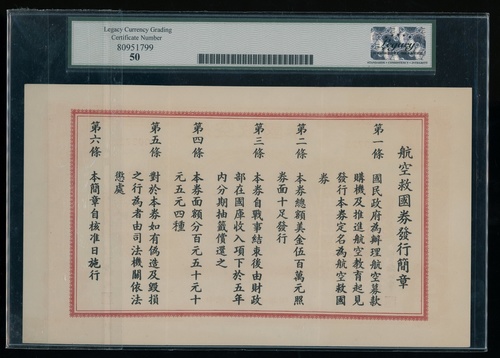 Legacy Currency Grading
Certificate Number
80951799
50
Legacy
航空救國券發行簡章
第一條 國民政府為辦理航空募款
購機及推進航空教育起見
發行本券定名為航空救國
券
第二條 本券總額美金伍百萬元照
券面十足發行
第三條 本券自戰事結束後由財政
部在國庫收入項下於五年
內分期抽籤償還之
第四條 本券面額分百元五十元十
元五元四種
第五條 對於本券如有偽造及毀損
之行為者由司法機關依法
懲處
第六條 本簡章自核准日施行